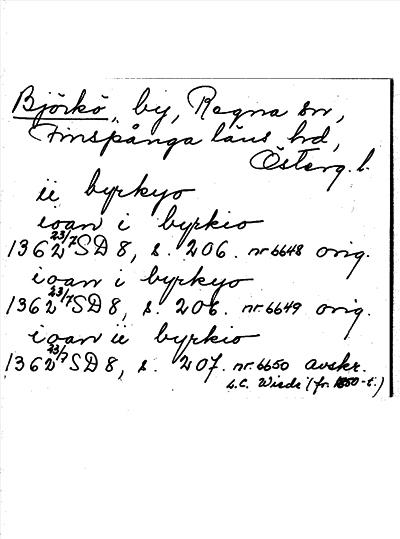 Björkö, by, Regna sn,
Finspånga läns hd,
Österg. l.
ii byrkyo
ioan i byrkio
1362 23/7 SD 8, s. 206. nr 6648 orig.
ioan i byrkyo
1362 23/7 SD 8, s. 206. nr 6649 orig.
ioan ii byrkio
1362 23/7 SD 8, s. 207. nr 6650 avskr.
L.C. Wiede (fr. 1850-t.)